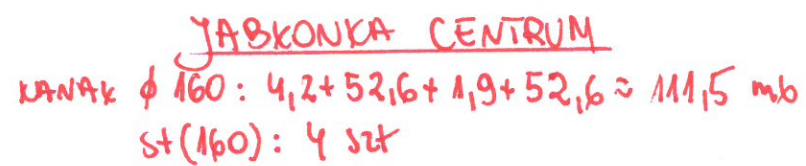 JABŁONKA CENTRUM
KANAŁ ϕ 160: 4,2+52,6+1,9+52,6 ≈ 111,5 mb
st(160): 4 szt